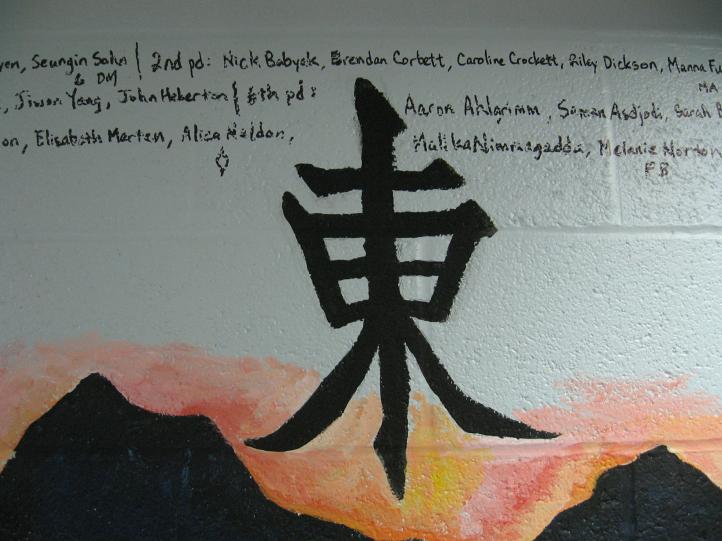 Seungin Sohn | 2nd pd: Nick Babyak, Brendan Corbett, Caroline Crockett, Riley Dickson, Manna
& DM
MA
Jiwon Yang, John Heberton { 6th pd: Aaron Ahlgrimm, Saman Asdjodi, Sarah
on, Elisabeth Marten, Aliza Neidon, Malika Nimmagadda, Melanie Norton
PB
東